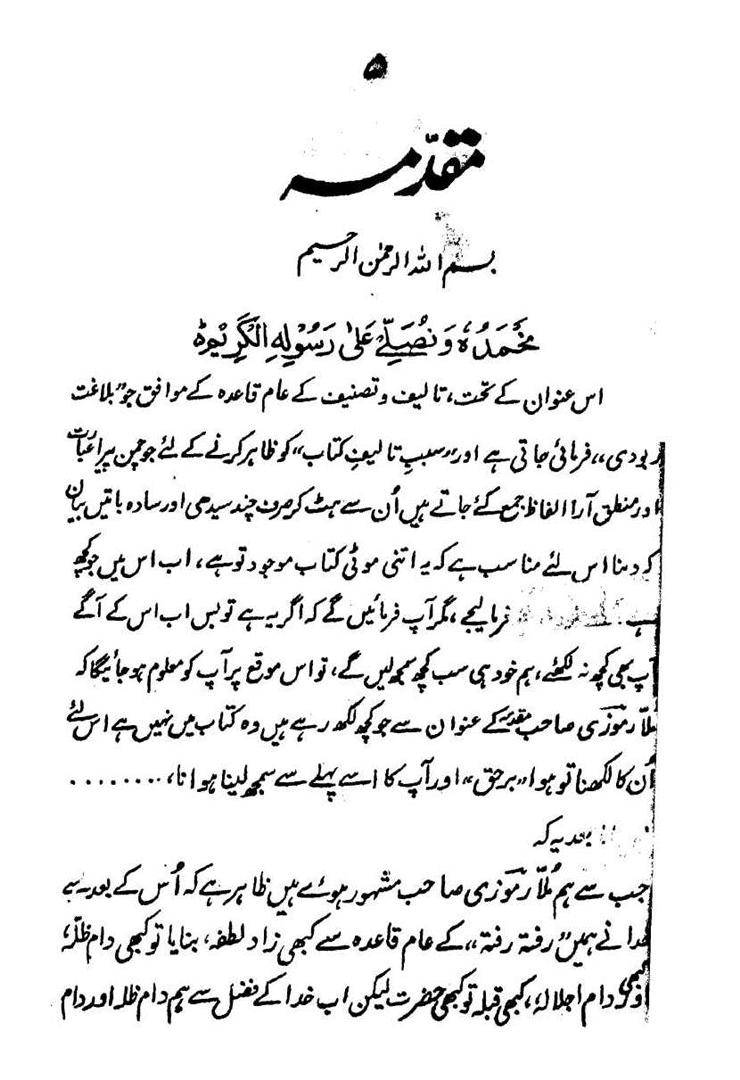 ۵
مقدّمہ
بسم اللہ الرحمٰن الرحیم
نحمدہٗ و نصلّی علیٰ رسولہ الکریم
اس عنوان کے تحت، تالیف و تصنیف کے عام قاعدہ کے موافق جو "بلاغت
ربودی"، فرمائی جاتی ہے اور "سببِ تالیفِ کتاب" کو ظاہر کرنے کے لئے جو چمن پیرا عبارت
اور منطق آرا الفاظ جمع کئے جاتے ہیں اُن سے ہٹ کر صرف چند سیدھی اور سادہ باتیں بیان
کر دینا اس لئے مناسب ہے کہ یہ اتنی موٹی کتاب موجود تو ہے، اب اس میں جو کچھ
ہے فرما لیجے، مگر آپ فرمائیں گے کہ اگر یہ ہے تو بس اب اس کے آگے
آپ بھی کچھ نہ لکھئے، ہم خود ہی سب کچھ سمجھ لیں گے، تو اس موقع پر آپ کو معلوم ہو جائیگا کہ
ملّا رموزی صاحب مقدمہ کے عنوان سے جو کچھ لکھ رہے ہیں وہ کتاب میں نہیں ہے اس لئے
اُن کا لکھنا تو ہوا "برحق" اور آپ کا اسے پہلے سے سمجھ لینا ہوا نا، ........
بعد یہ کہ
جب سے ہم مُلّا رموزی صاحب مشہور ہوئے ہیں ظاہر ہے کہ اُس کے بعد سے
خدا نے ہمیں "رفتہ رفتہ"، کے عام قاعدہ سے کبھی زاد لطفہٗ، بنایا تو کبھی دام ظلّہٗ،
اور کبھی دام اجلالہٗ، کبھی قبلہ تو کبھی حضرت لیکن اب خدا کے فضل سے ہم دام ظلہ اور دام